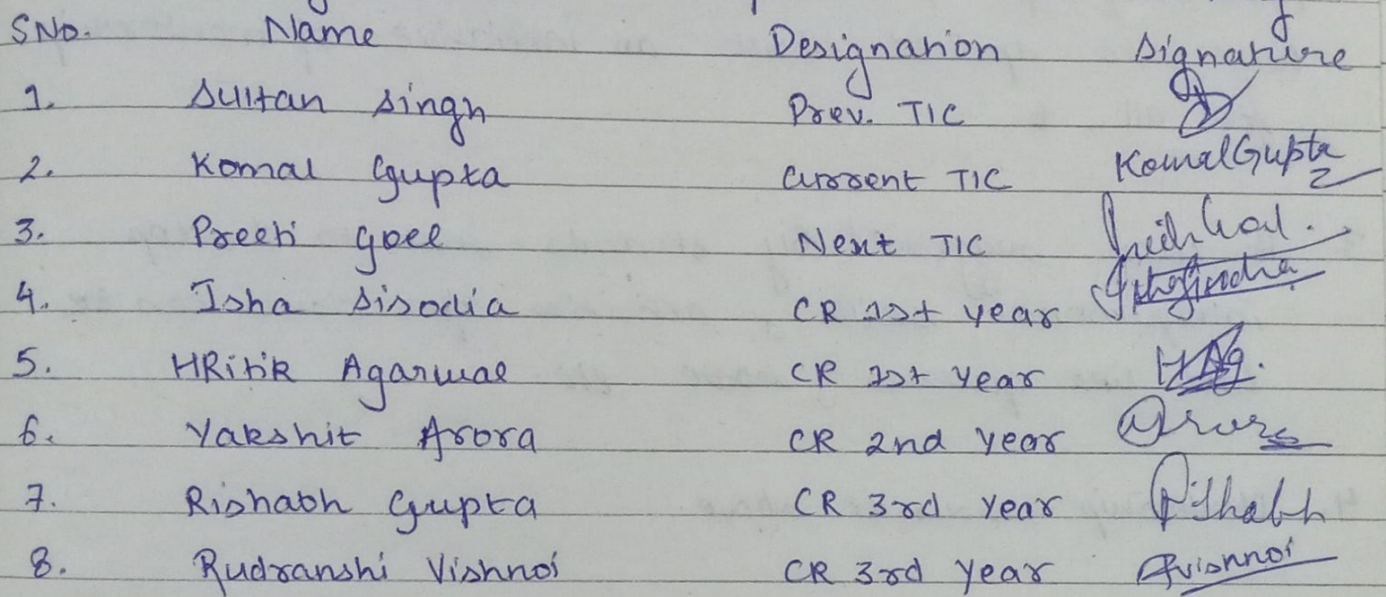 SNo. Name Designation Signature
1. Sultan Singh Prev. TIC
2. Komal Gupta Current TIC Komal Gupta
3. Preeti Goel Next TIC
4. Isha Sisodia CR 1st year
5. HRitik Agarwal CR 1st year HAg.
6. Yakshit Arora CR 2nd year Arora
7. Rishabh Gupta CR 3rd year Rishabh
8. Rudranshi Vishnoi CR 3rd year RVishnoi